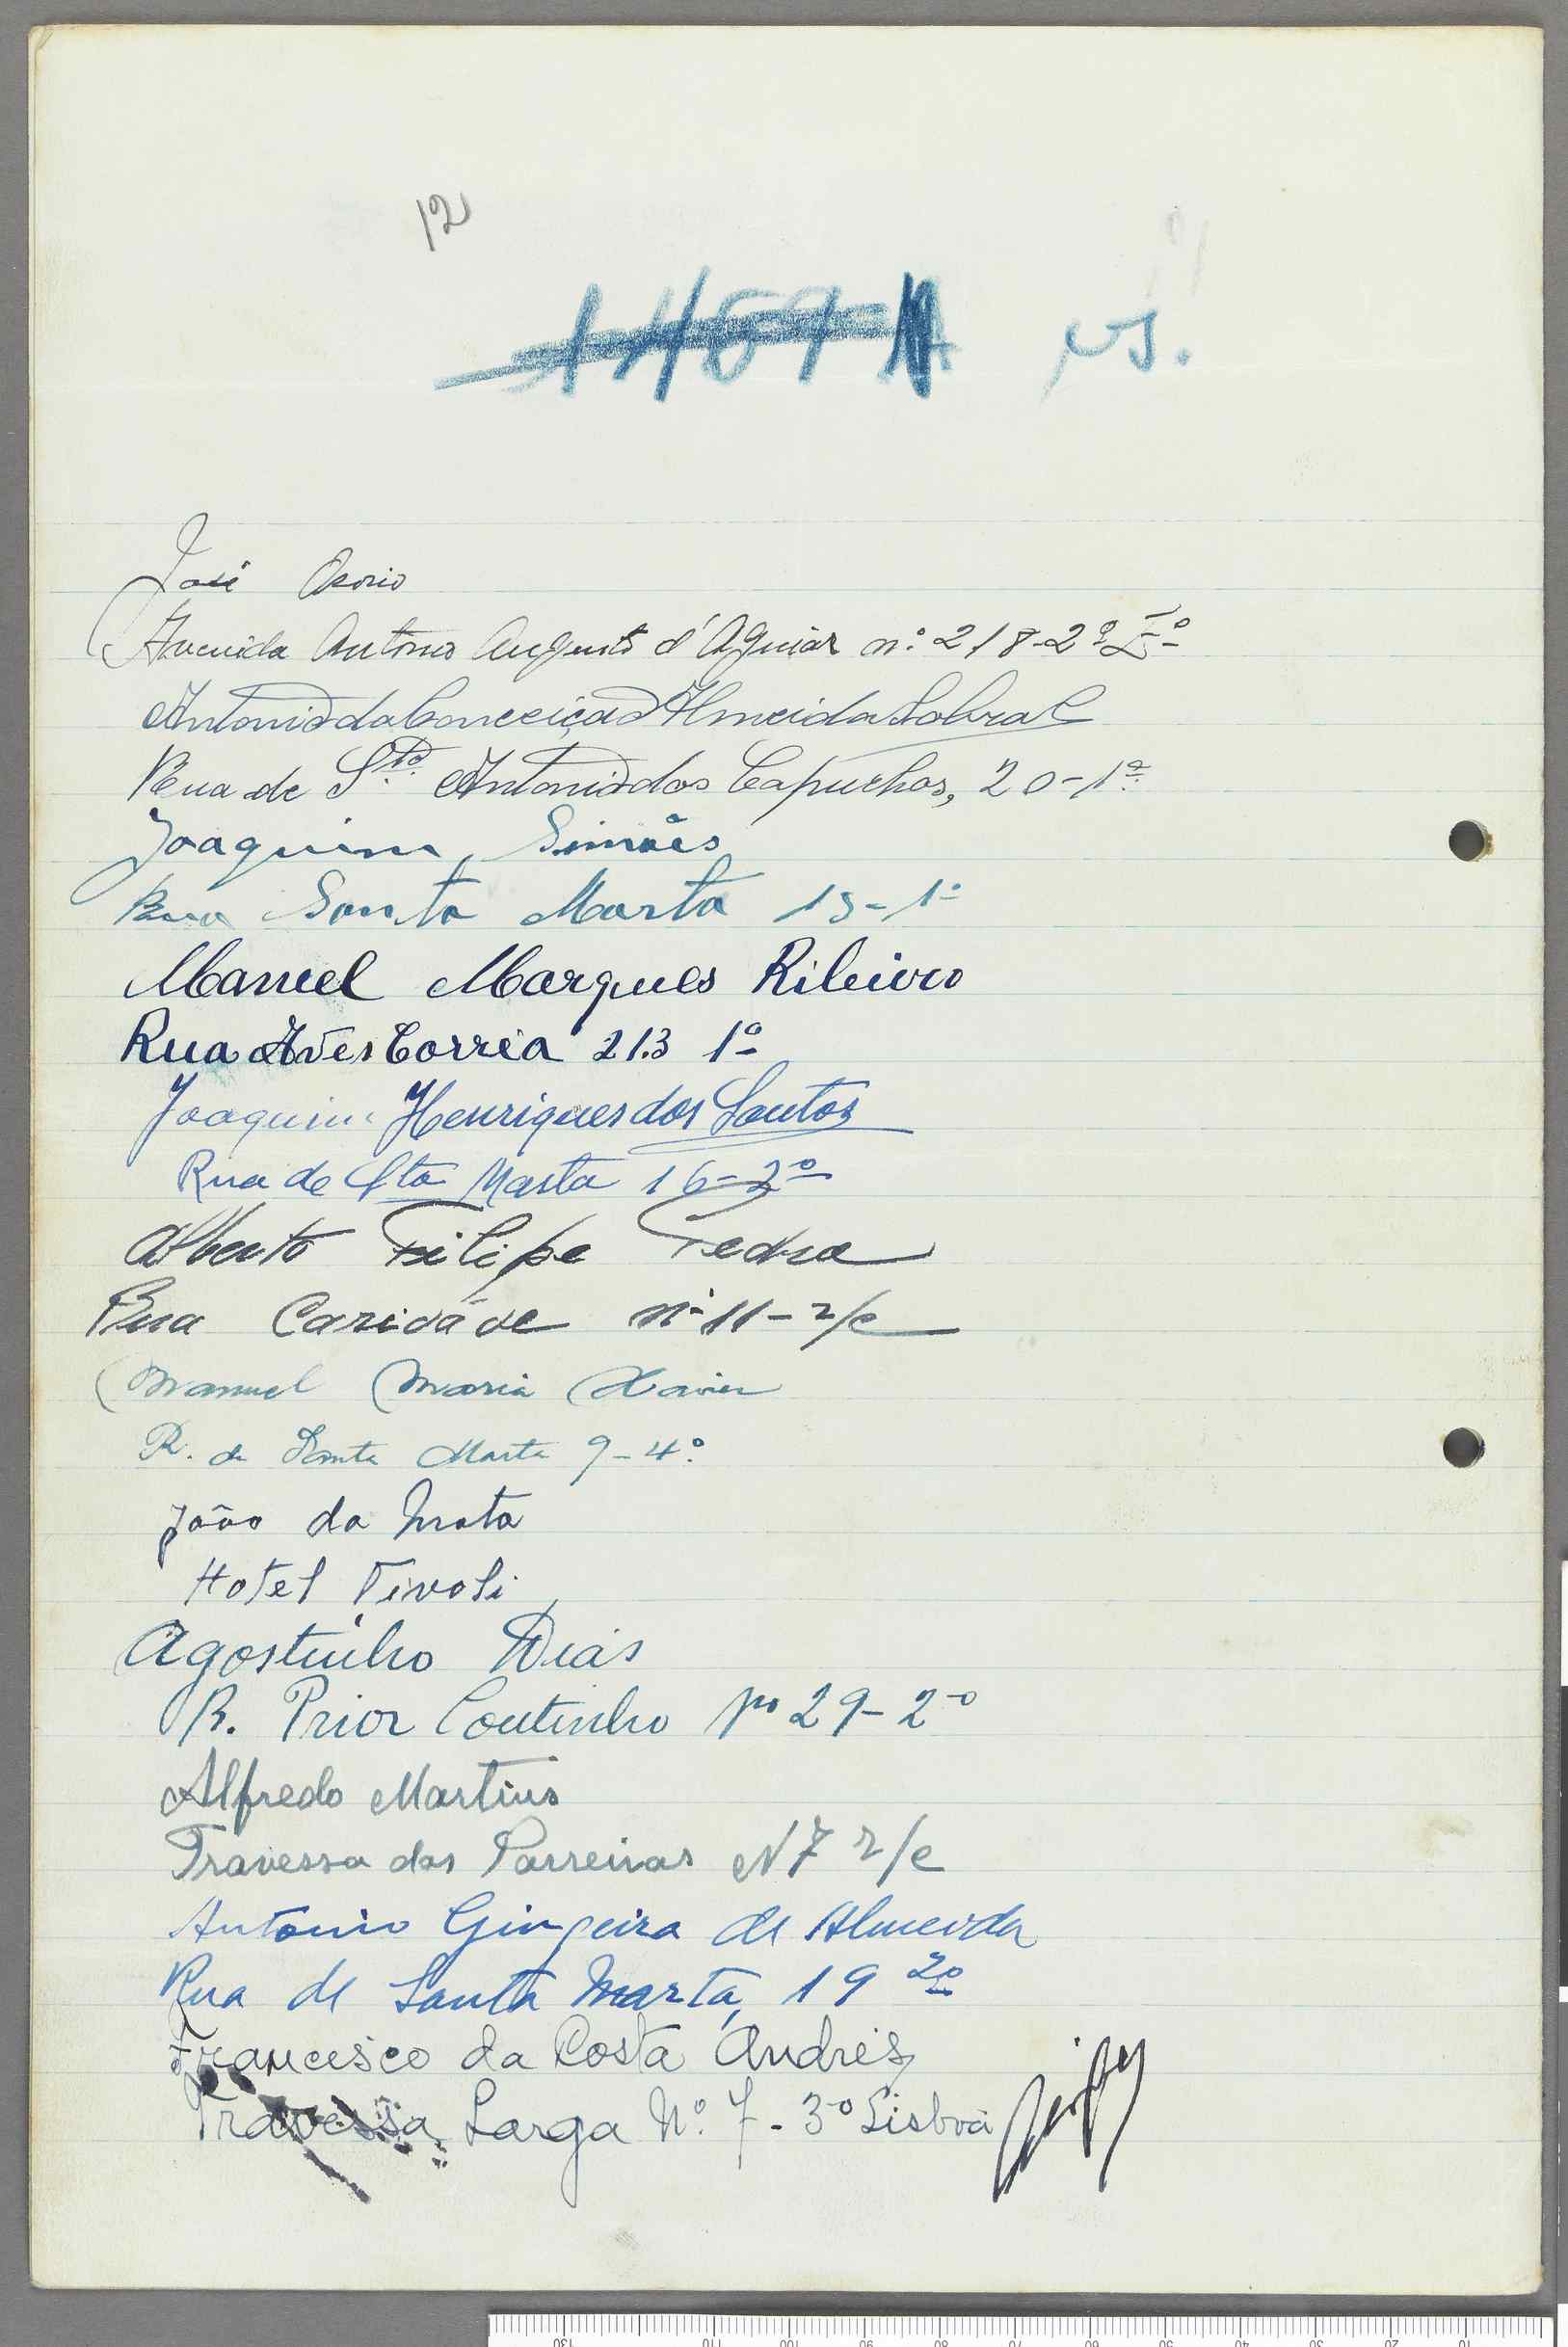 12
1469 A vs.
José Osorio
Avenida Antonio Augusto d'Aguiar n.º 218-2º E.º
Antonio da Conceição Almeida Sobral
Rua de S.to Antonio dos Capuchos, 20-1º
Joaquim Simões
Rua Santa Marta 15-1º
Manuel Marques Ribeiro
Rua Alves Correia 213 1º
Joaquim Henriques dos Santos
Rua de Sta Marta 16-2º
Alberto Filipe Pedro
Rua Caridade nº 11-r/c
Manuel Maria Xavier
R. de Santa Marta 9-4º
João da Mata
Hotel Tivoli
Agostinho Dias
R. Prior Coutinho nº 29-2º
Alfredo Martins
Travessa das Parreiras N 7 r/c
Antonio Gingeira de Almeida
Rua de Santa Marta, 19 2º
Francisco da Costa Andres
Travessa Larga Nº. 7-3º Lisboa